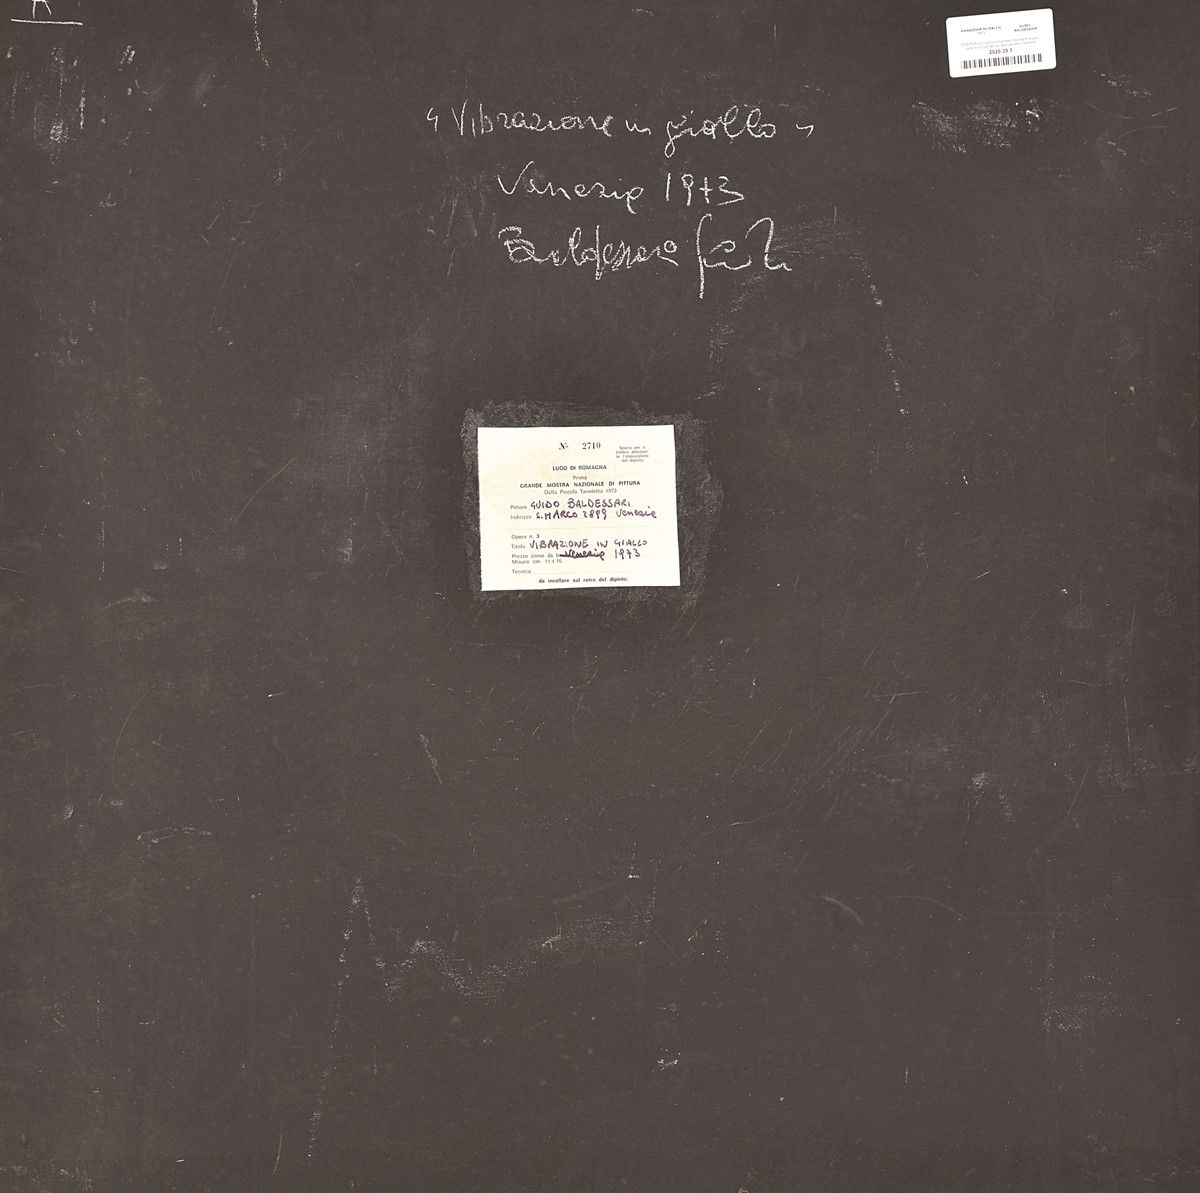 R
VIBRAZIONE IN GIALLO
GUIDO BALDESSARI
1973
2020-39 §
"Vibrazione in giallo"
Venezia 1973
Baldessari Guido
N. 2710
Spazio per il
LUGO DI ROMAGNA
Prima
GRANDE MOSTRA NAZIONALE DI PITTURA
Della Piccola Tavoletta 1973
Pittore GUIDO BALDESSARI
Indirizzo S. MARCO 2899 Venezia
Opera n. 3
Titolo VIBRAZIONE IN GIALLO
Prezzo come da Venezia 1973
Misure cm. 11 x 16
Tecnica
da incollare sul retro del dipinto.